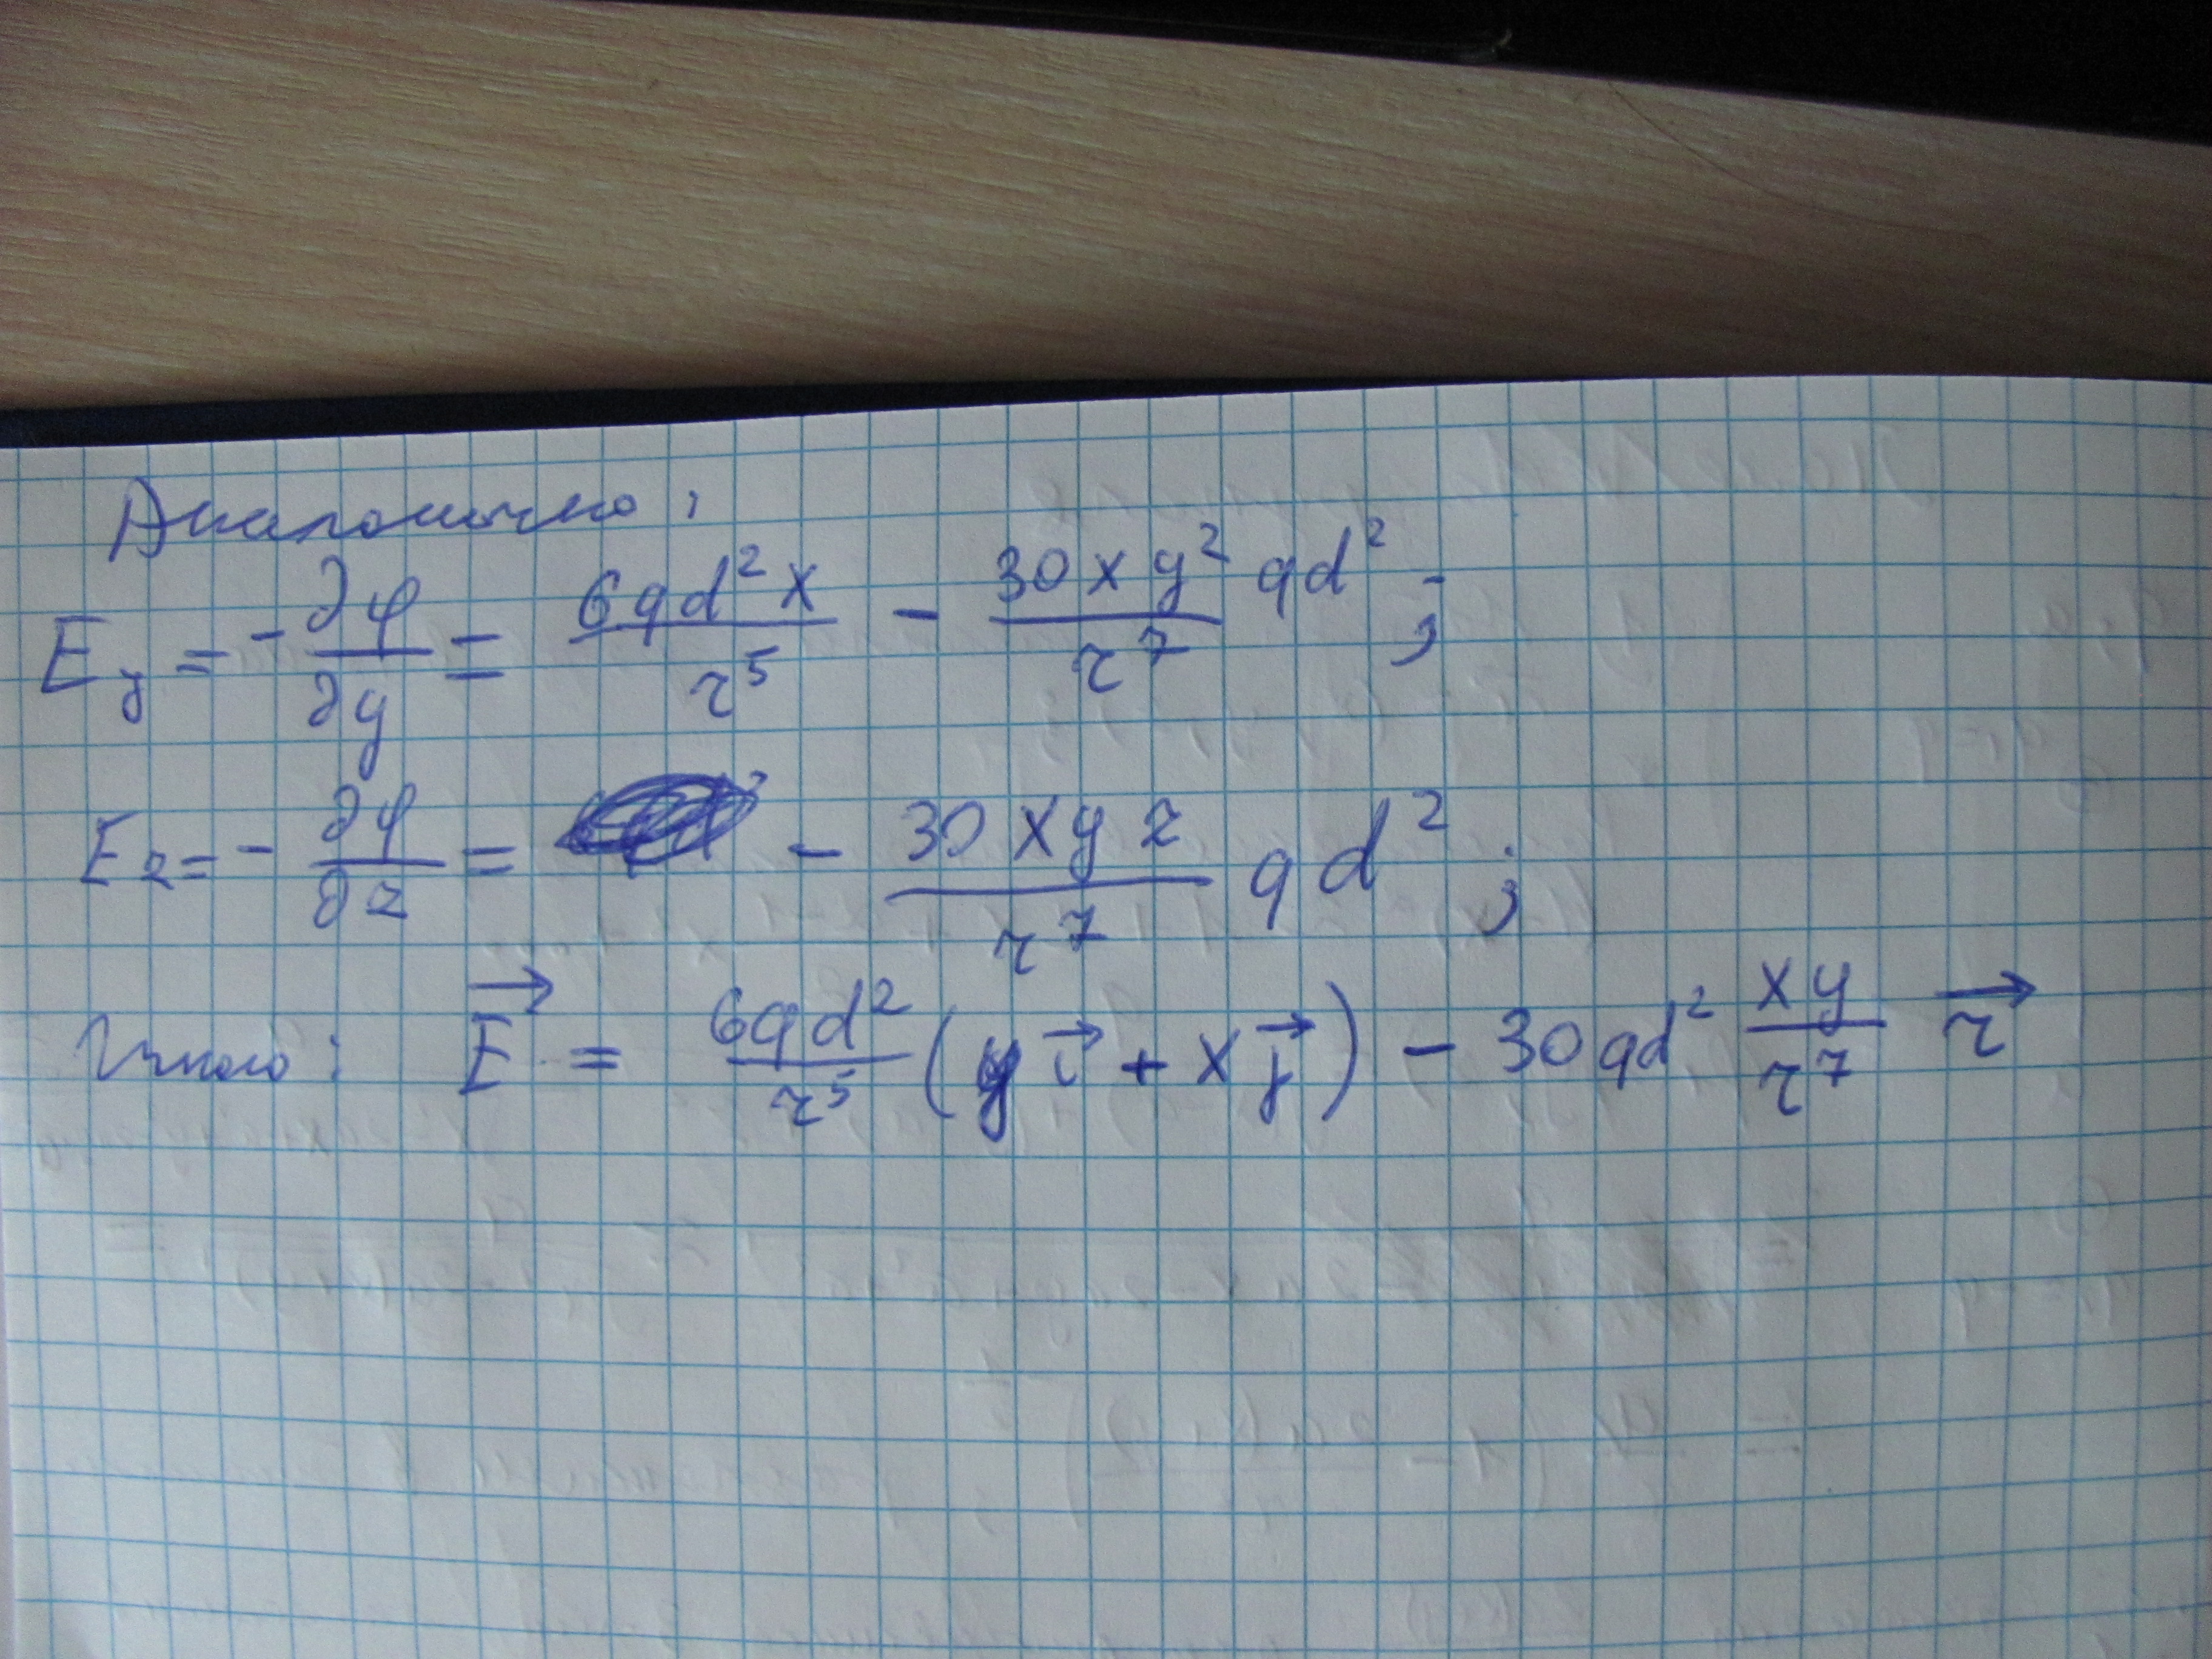 Аналогично:
E_y = -∂φ/∂y = 6qd²x/r⁵ - 30xy²/r⁷ qd²;
E_z = -∂φ/∂z = - 30xyz/r⁷ qd²;
Итого: E⃗ = 6qd²/r⁵ (y i⃗ + x j⃗) - 30qd² xy/r⁷ r⃗